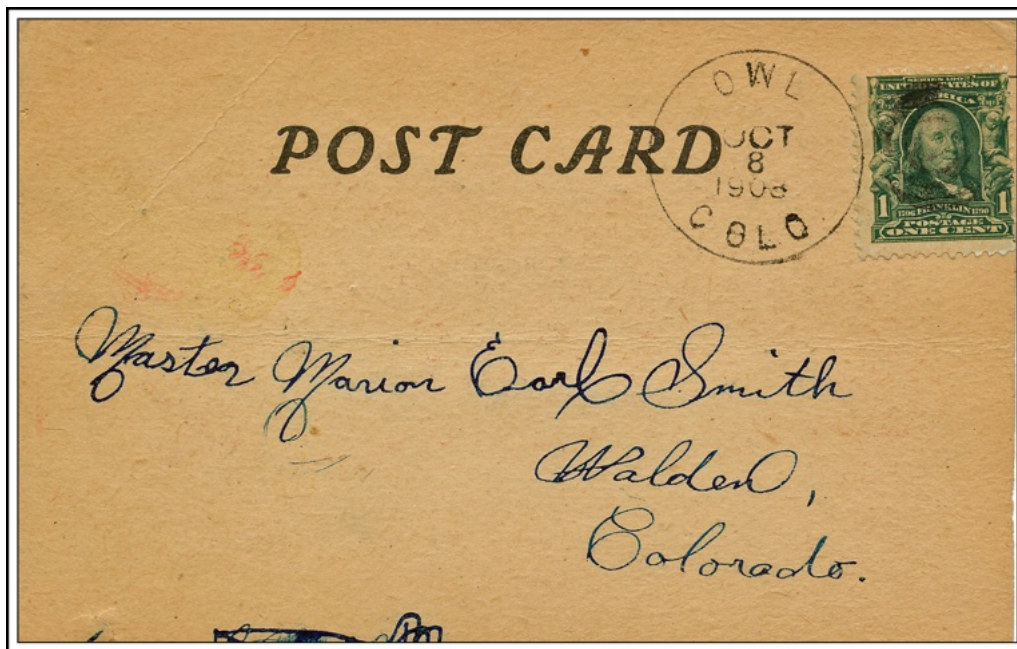 POST CARD
OWL
OCT
8
1908
COLO
SERIES 1902
UNITED STATES OF
AMERICA
1 1706 FRANKLIN 1790 1
POSTAGE
ONE CENT
Master Marion Earl Smith
Walden,
Colorado.